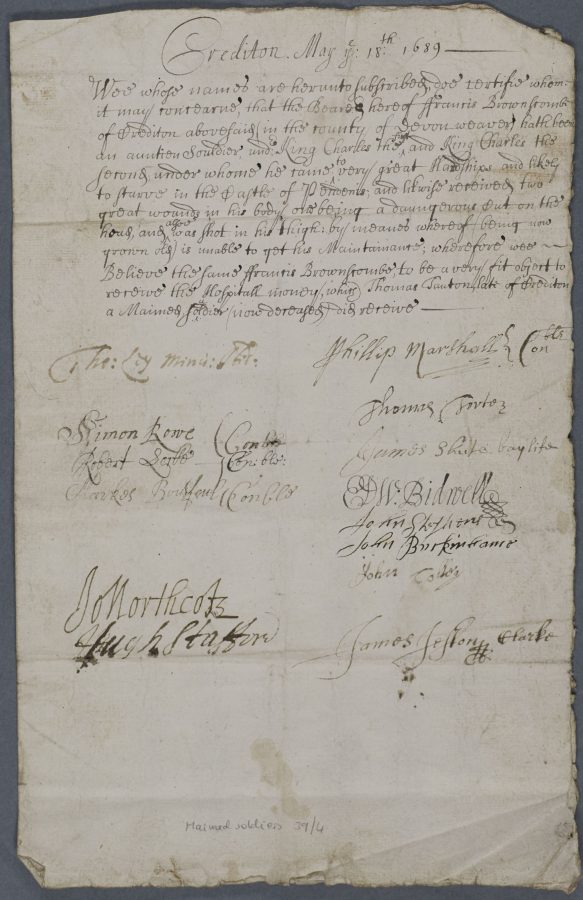 Crediton. May ye: 18th 1689
Wee whose names are herunto subscribed, doe certifie whom
it may concearne, that the Bearer hereof ffrancis Brownscombe
of Crediton abovesaid in the county of Devon weaver, hath been
an auntien Souldier undr King Charles the first and King Charles the
second, under whome he came to very great Hardships and likely
to starve in the Castle of Pendenis, and likwise received two
great wounds in his body one being a daungerous Cut on the
head, and also was shot in his thigh, by meanes whereof (being now
grown old) is unable to get his Maintainance; wherefore wee
Believe the same ffrancis Brownscombe, to be a very fit object to
receive the Hospitall money, which Thomas Tanton, late of Crediton
a Maimed soldier (now deceased) did receive
Tho: Ley Minis:
Phillip Marshall Conble
Thomas
Simon Rowe Conble
James Shute baylife
Robert Conble:
Charles Conble
Wm: Bidwell
John Stephens
John Buckinhame
John
Jo Northcote
Hugh Stafford
James Clarke
Maimed soldiers 39/4